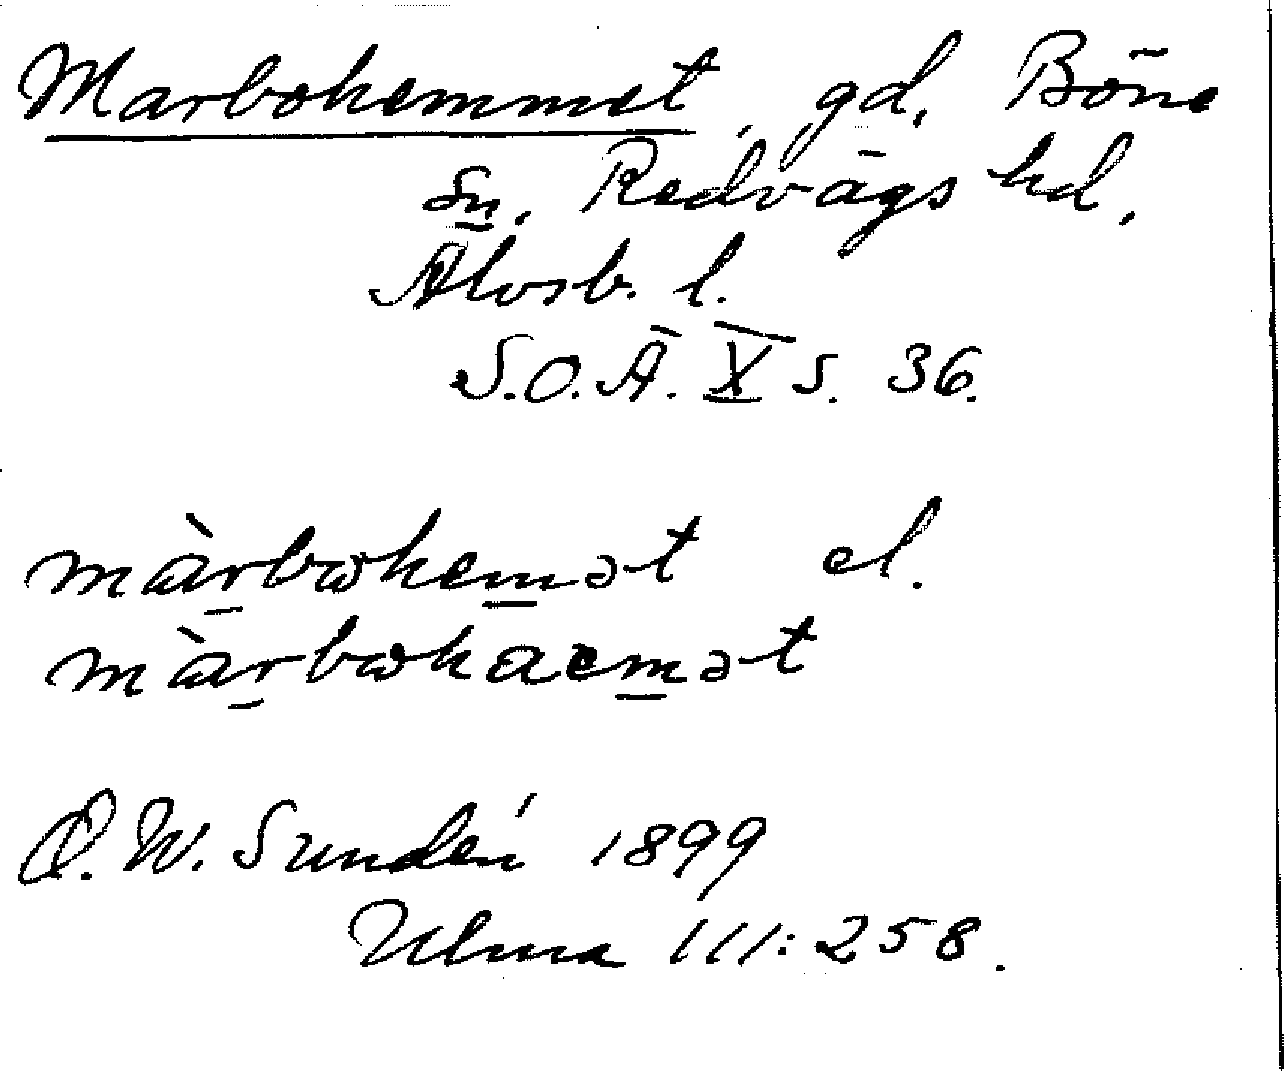 Marbohemmet, gd, Böne
sn, Redvägs hd,
Älvsb. l.
S.O.Ä. X s. 36.
màrbωhemət el.
màrbωhaemət
D. W. Sundén 1899
Ulma 111:258.